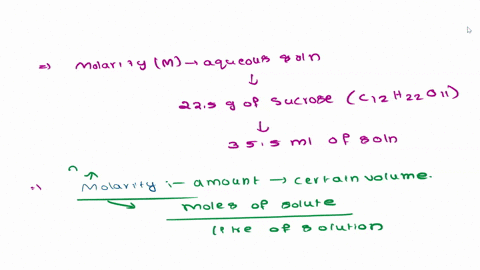 =) Molarity (M) → aqueous soln
↓
22.5 g of sucrose (C12H22O11)
↓
35.5 ml of soln
=) Molarity :- amount → certain volume.
moles of solute
litre of solution